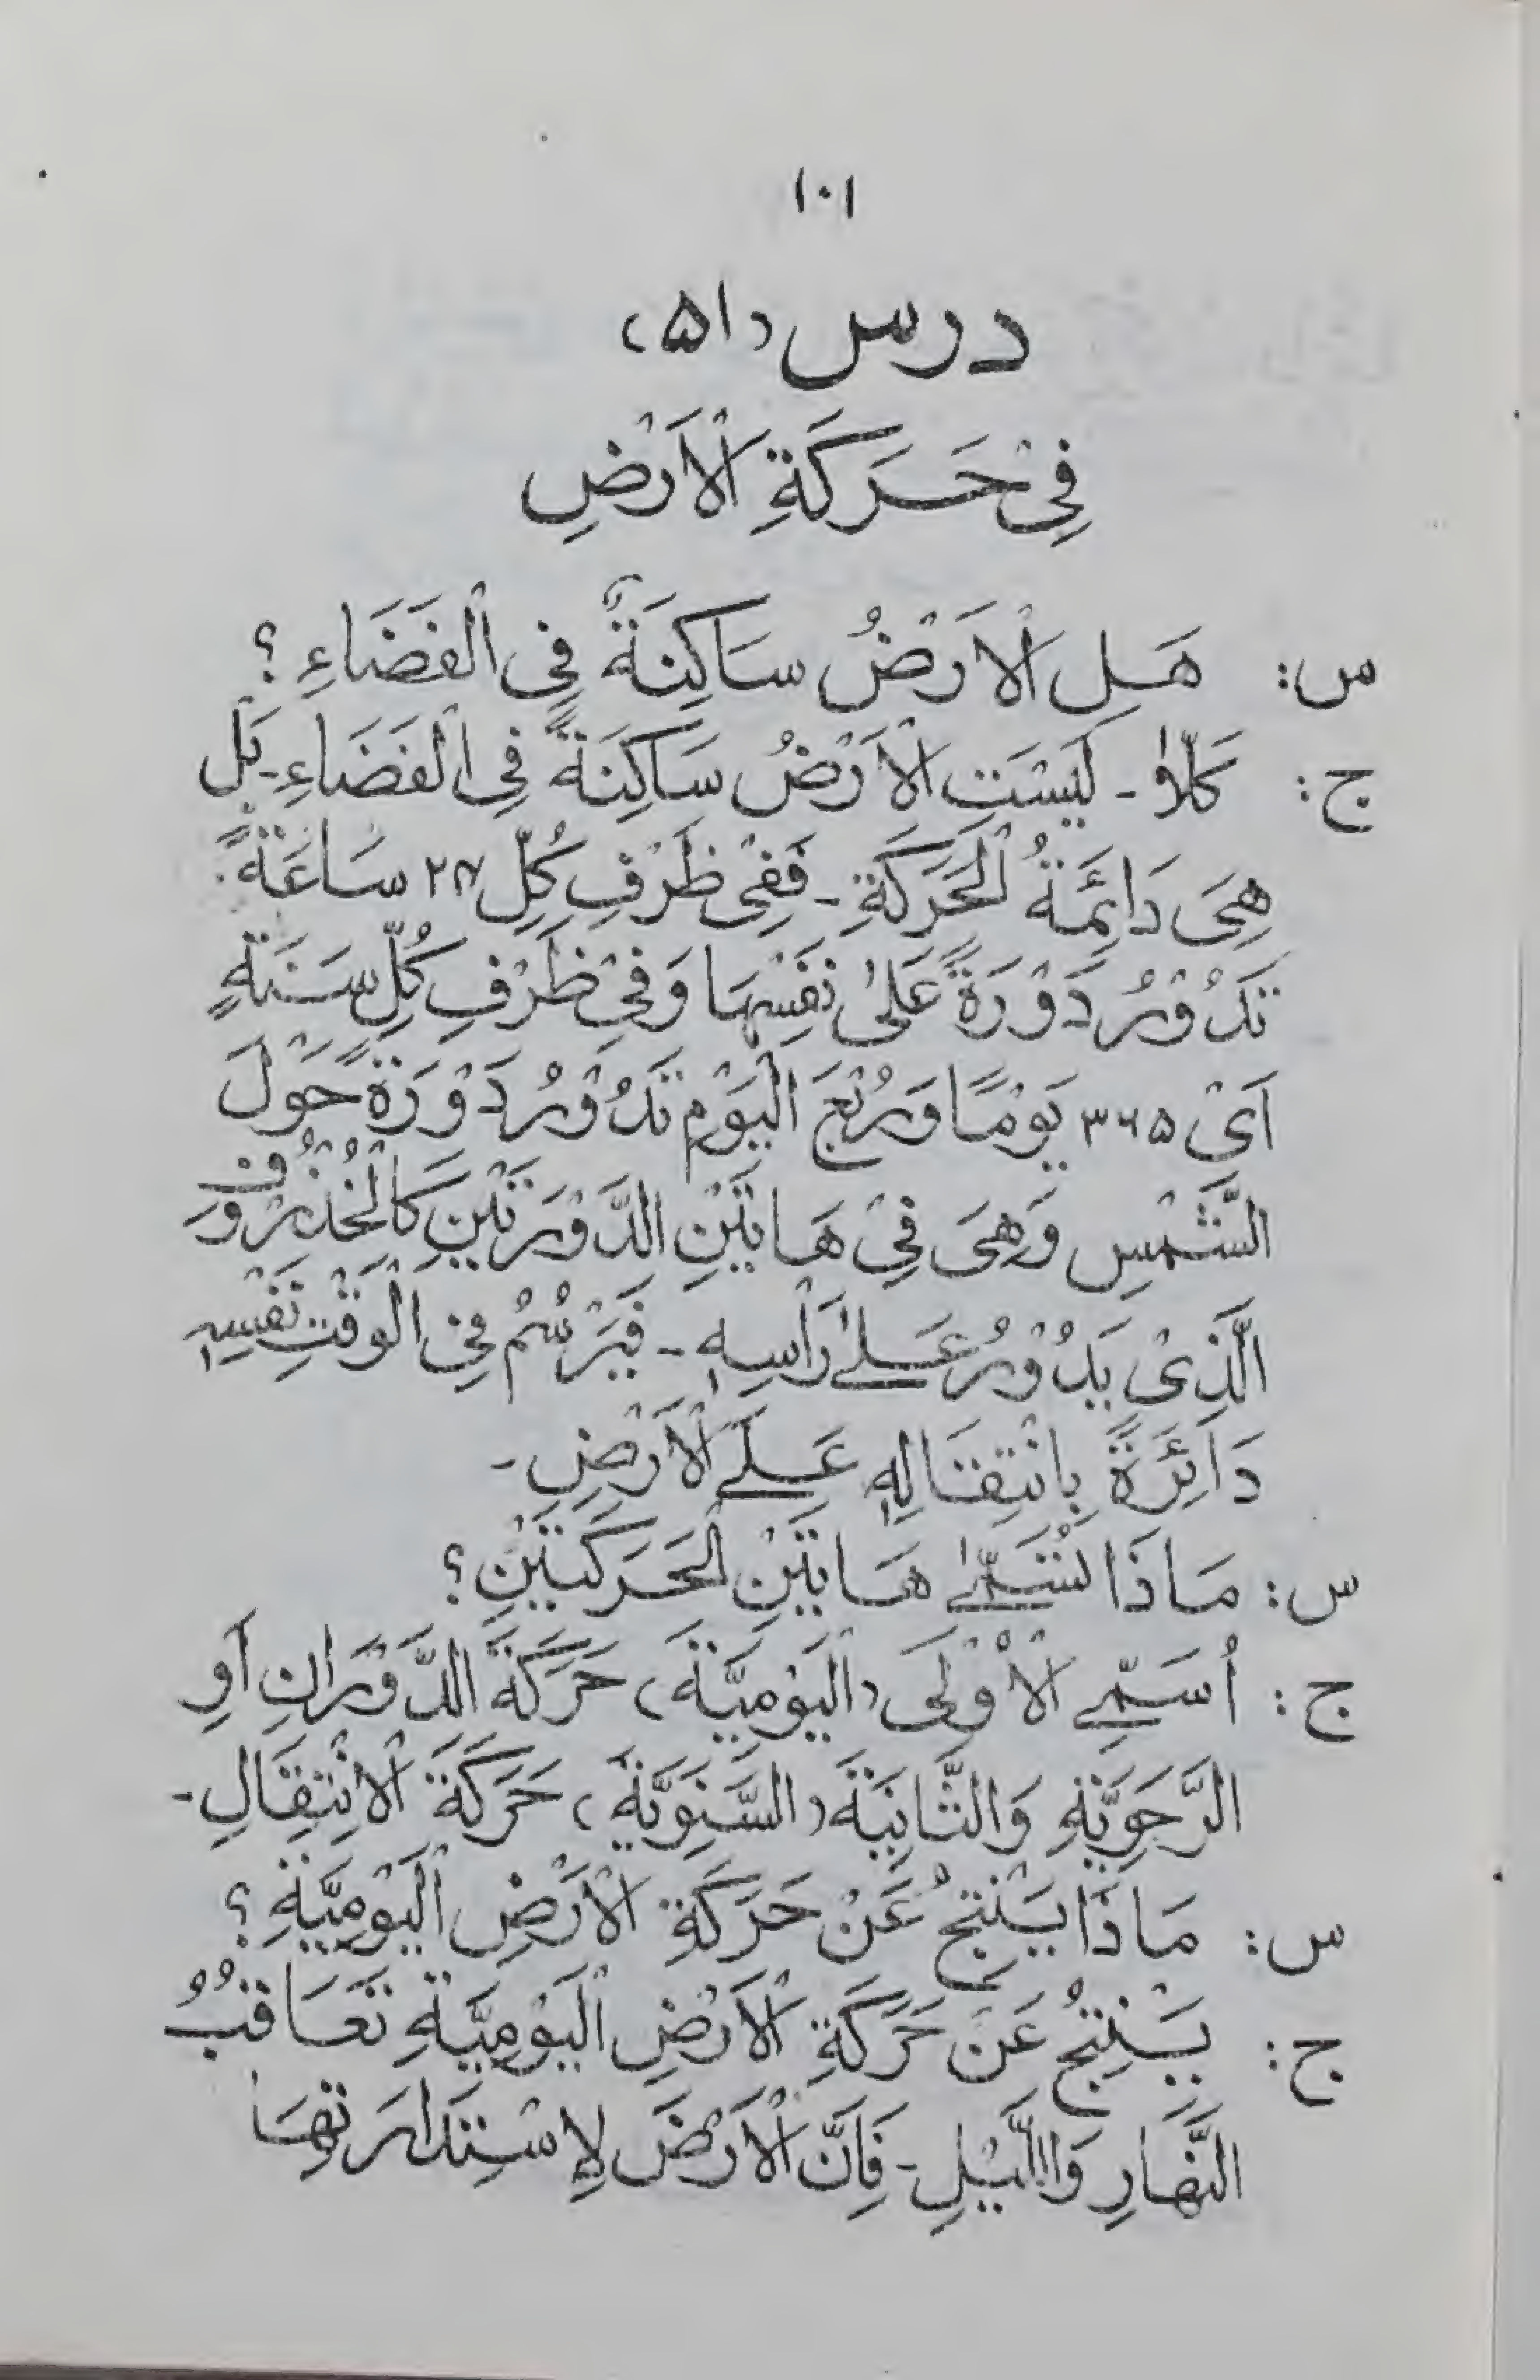 ١٠١
درس (۵۱)
فِیْ حَرَكَةِ الْاَرْضِ
س: هَلِ الْاَرْضُ سَاكِنَةٌ فِی الْفَضَاءِ ؟
ج: كَلَّا ـ لَيْسَتِ الْاَرْضُ سَاكِنَةً فِی الْفَضَاءِ ـ بَلْ
هِىَ دَائِمَةُ الْحَرَكَةِ ـ فَفِیْ ظَرْفِ كُلِّ ۲۴ سَاعَةً
تَدُوْرُ دَوْرَةً عَلٰى نَفْسِهَا وَفِیْ ظَرْفِ كُلِّ سَنَةٍ
اَىْ ۳۶۵ يَوْمًا وَرُبْعَ الْيَوْمِ تَدُوْرُ دَوْرَةً حَوْلَ
الشَّمْسِ وَهِىَ فِیْ هَاتَيْنِ الدَّوْرَتَيْنِ كَالْخُذْرُوْفِ
الَّذِىْ يَدُوْرُ عَلٰے رَأْسِهٖ ـ فَيَرْسُمُ فِی الْوَقْتِ نَفْسِهٖ
دَائِرَةً بِانْتِقَالِهٖ عَلَے الْاَرْضِ ـ
س: مَاذَا تُسَمّٰے هَاتَيْنِ الْحَرَكَتَيْنِ ؟
ج: اُسَمِّے الْاُوْلَى (الْيَوْمِيَّةَ) حَرَكَةَ الدَّوَرَانِ اَوِ
الرَّحَوِيَّةِ وَالثَّانِيَةَ (السَّنَوِيَّةَ) حَرَكَةَ الْاِنْتِقَالِ ـ
س: مَاذَا يَنْتِجُ عَنْ حَرَكَةِ الْاَرْضِ الْيَوْمِيَّةِ ؟
ج: يَنْتِجُ عَنْ حَرَكَةِ الْاَرْضِ الْيَوْمِيَّةِ تَعَاقُبُ
النَّهَارِ وَاللَّيْلِ ـ فَاِنَّ الْاَرْضَ لِاِسْتِدَارَتِهَا